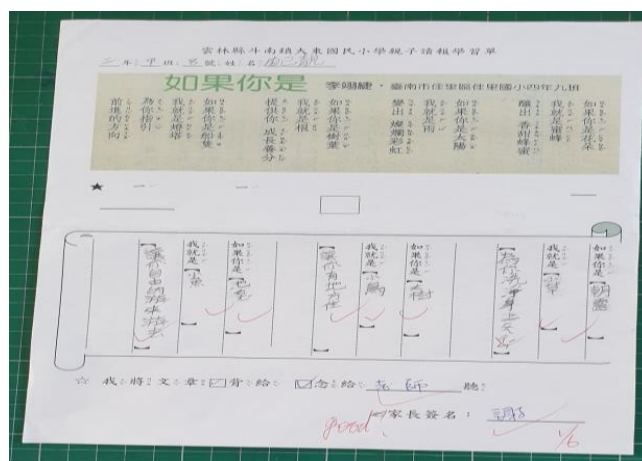 雲林縣斗南鎮大東國民小學親子讀報學習單
如果你是 李翊緁・臺南市佳里區佳里國小四年九班
如果你是花朵
我就是蜜蜂
釀出 香甜蜂蜜
如果你是太陽
我就是雨
變出 燦爛彩虹
如果你是樹葉
我就是根
提供你 成長養分
如果你是船隻
我就是燈塔
為你指引
前進的方向
★
如果你是【朝露】
我就是【小草】
如果你是【大樹】
我就是【小鳥】
讓你有地方住
如果你是
我就是【小魚】
【讓你自由的游來游去】
☆ 我將文章☑背給 ☑念給 老師 聽
家長簽名：
good
1/6